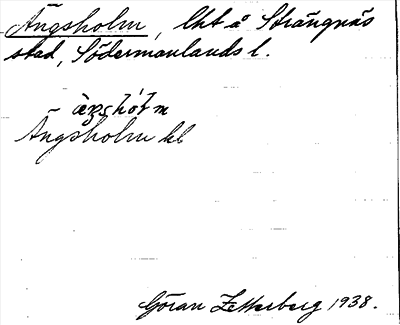 Ängsholm, lht å Strängnäs
stad, Södermanlands l.
Ängsholm hl
Göran Zetterberg 1938.